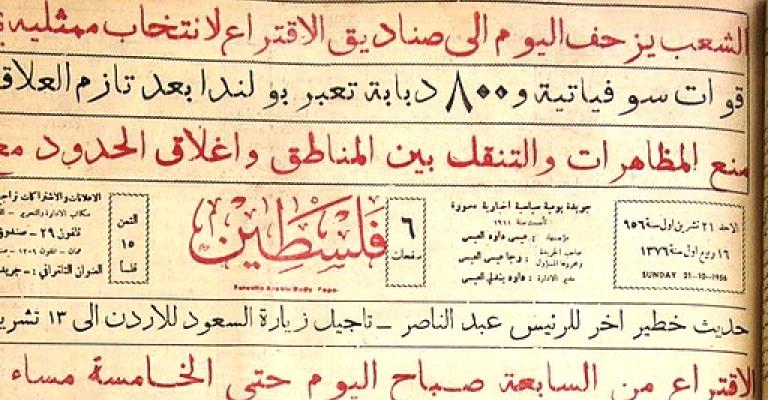 الشعب يزحف اليوم الى صناديق الاقتراع لانتخاب ممثليه
قوات سوفياتية و ٨٠٠ دبابة تعبر بولندا بعد تازم العلاقا
منع المظاهرات والتنقل بين المناطق واغلاق الحدود مع
الاحد ٢١ تشرين اول سنة ٩٥٦
١٦ ربيع اول سنة ١٣٧٦
SUNDAY 21-10-1956
جريدة يومية سياسية اخبارية مصورة
تأسست سنة ١٩١١
مؤسسها : عيسى داود العيسى
صاحب الجريدة
ومحررها المسؤول : رجا عيسى العيسى
مدير الادارة : داود بندلي العيسى
٦
صفحات
فلسطين
Falastin Arabic Daily Paper
الثمن
١٥
فلسا
الاعلانات والاشتراكات تراجع
مكاتب الادارة والتحرير
تلفون ٢٩ - صندوق
عمان - تلفون ١٢٠٩ - صندوق
العنوان التلغرافي : - جريد
حديث خطير اخر للرئيس عبد الناصر - تاجيل زيارة السعود للاردن الى ١٣ تشري
الاقتراع من السابعة صباح اليوم حتى الخامسة مساء